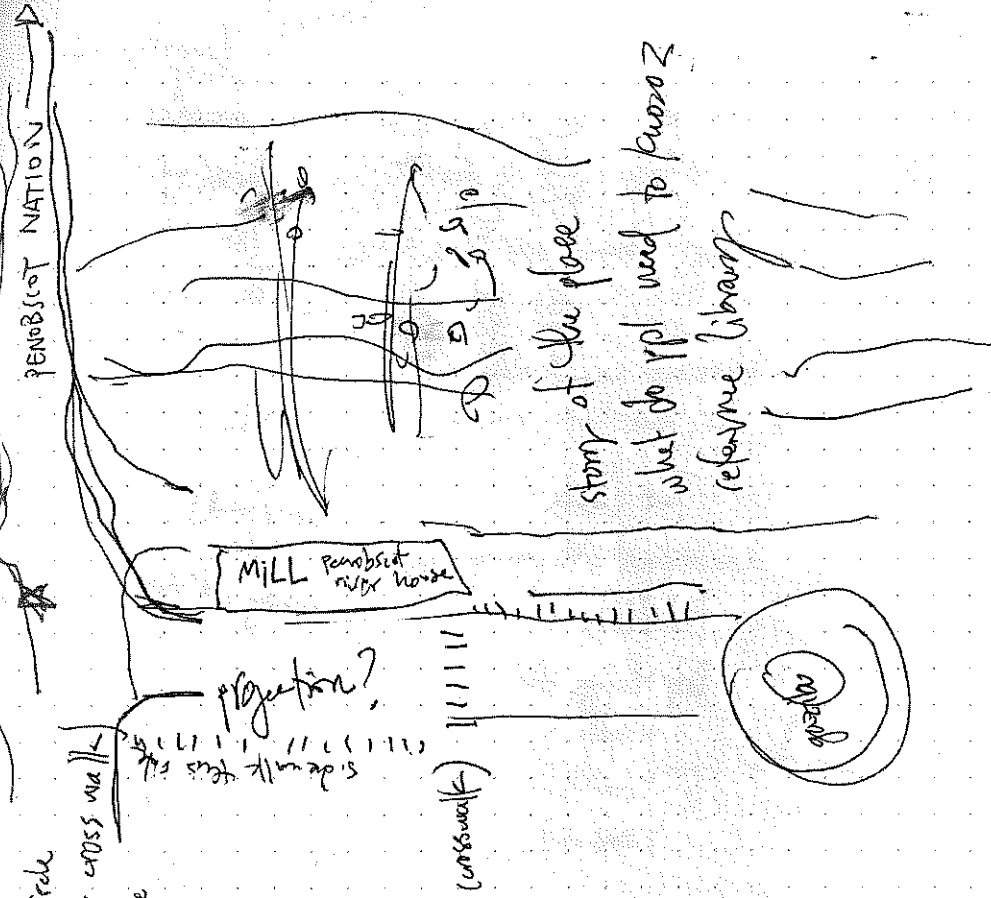 PENOBSCOT NATION
story of the place
what do ppl need to know?
reference library
MiLL penobscot
river house
projection?
sidewalk this side
cross walk
(crosswalk)